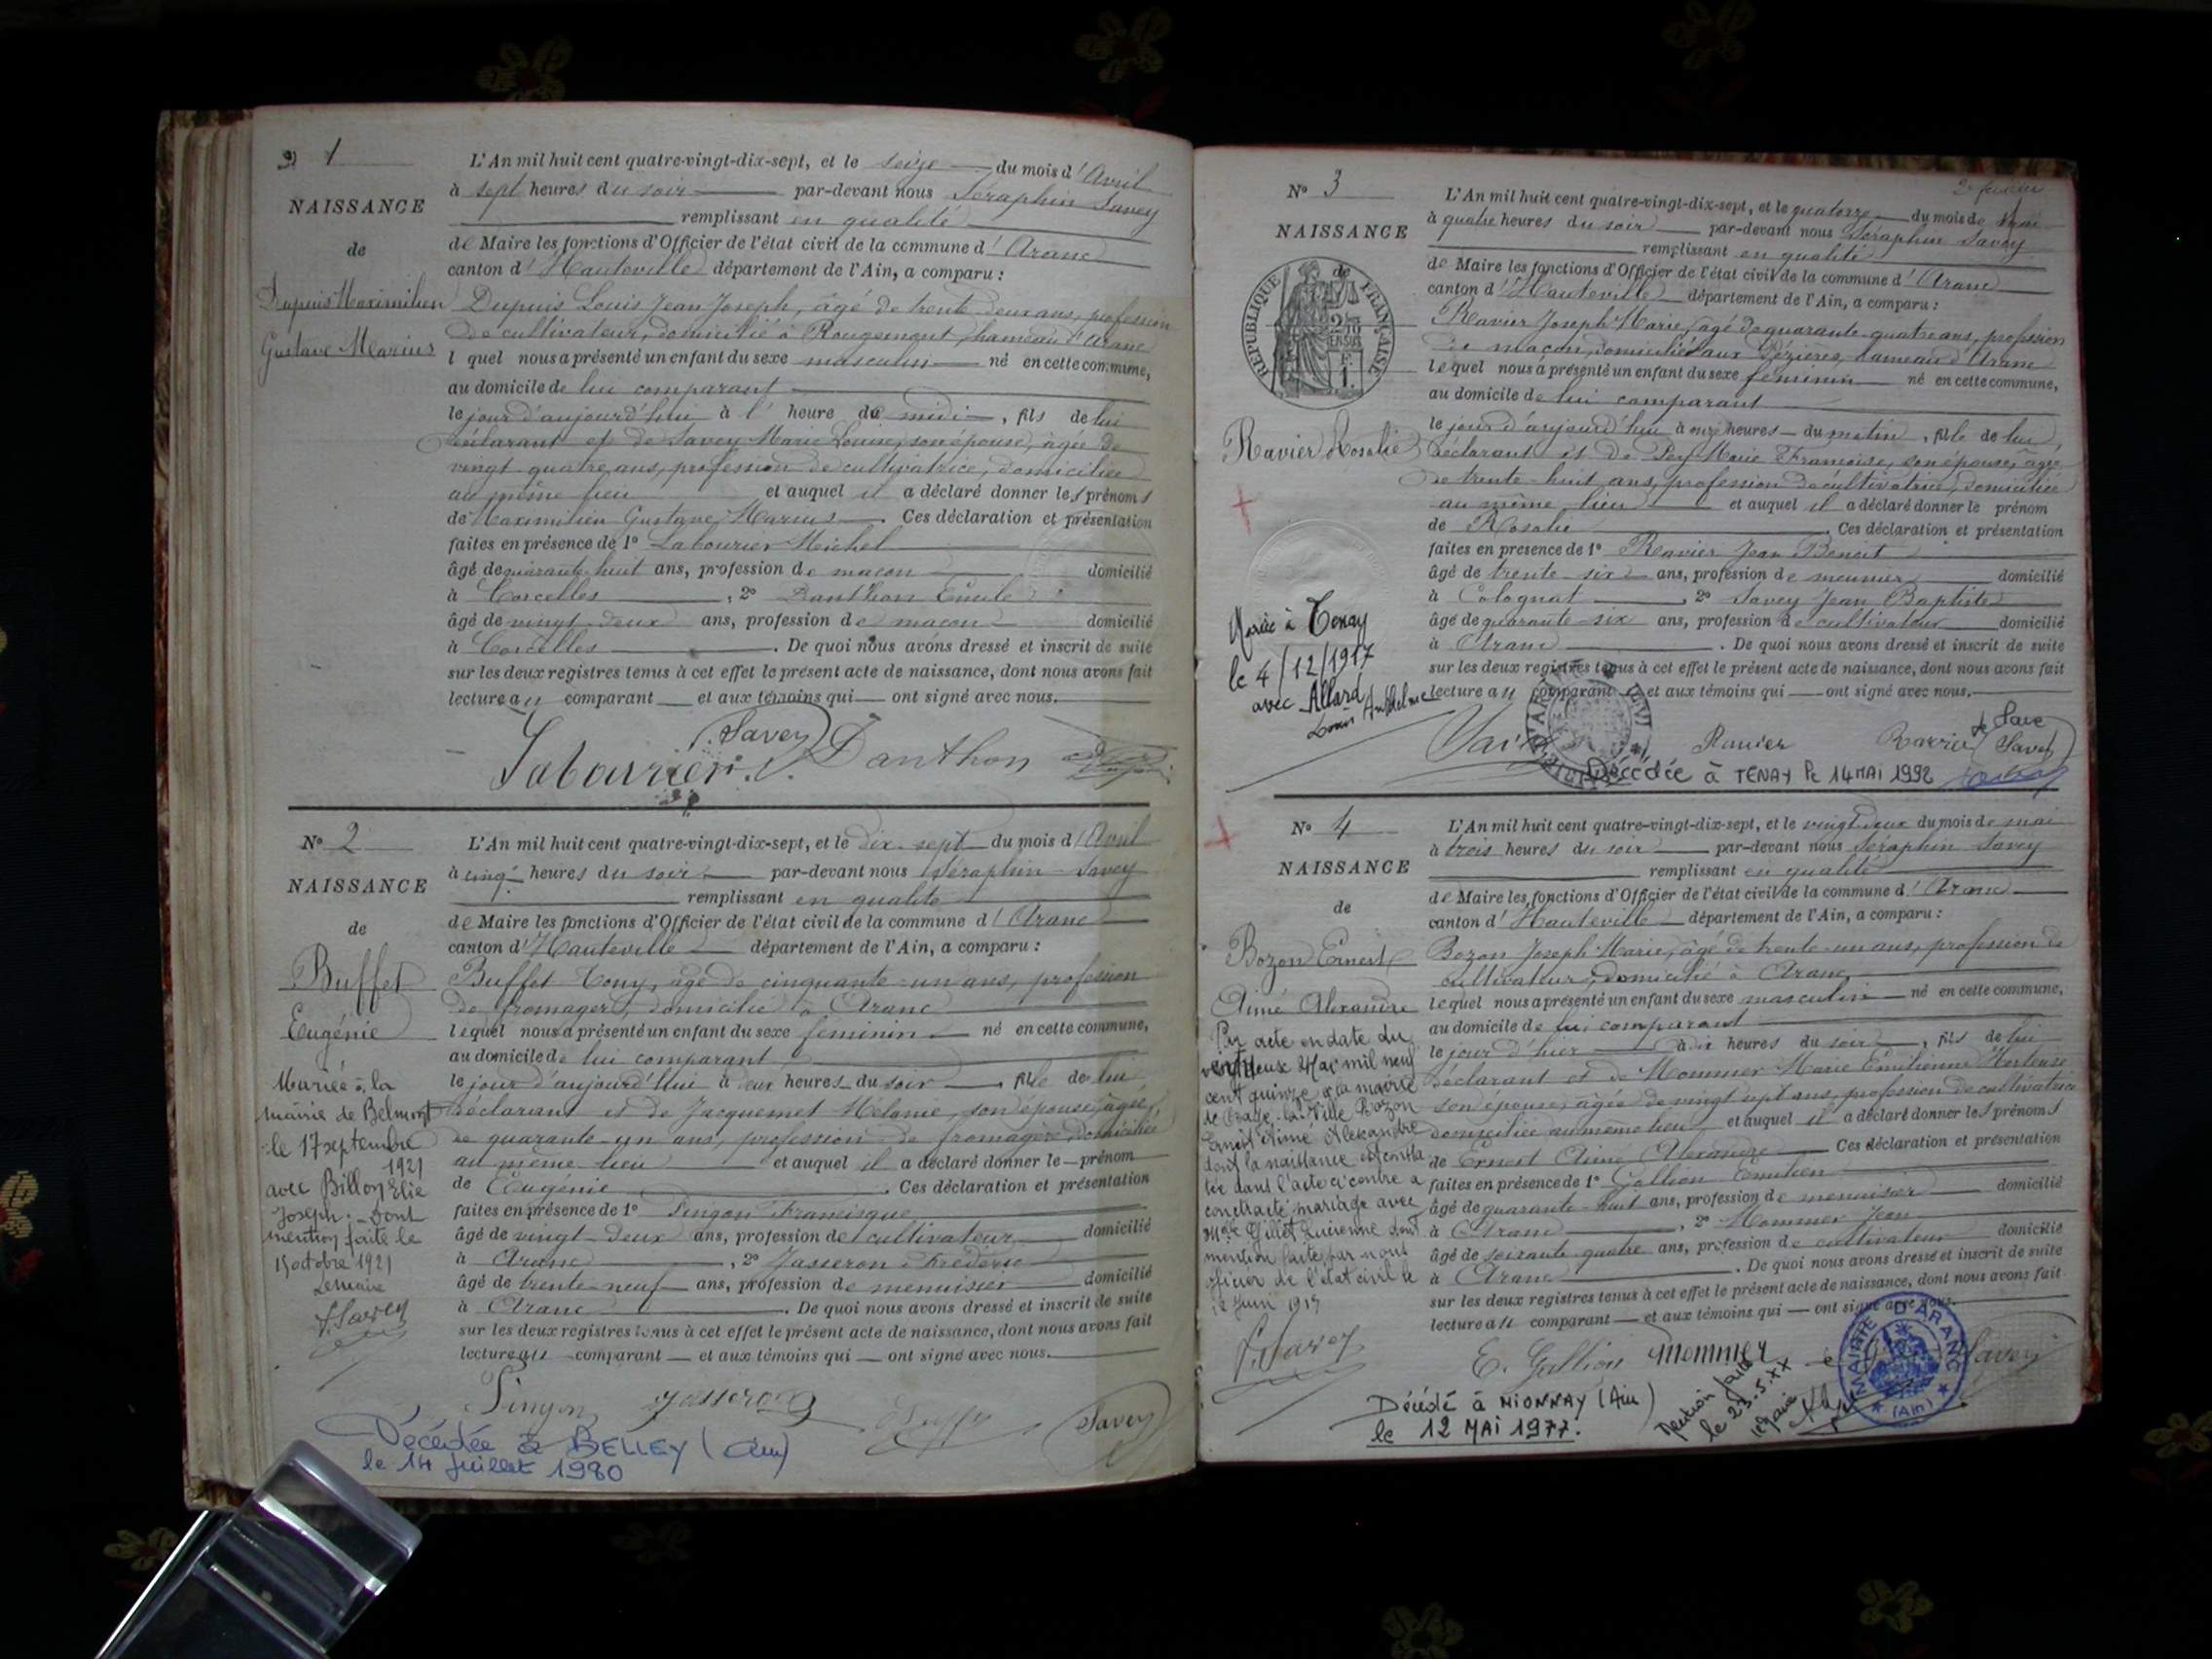 1
NAISSANCE
de
Dupuis Maximilien
Gustave Marius
L'An mil huit cent quatre-vingt-dix-sept, et le seize du mois d'Avril
à sept heures du soir par-devant nous Séraphin Savey
remplissant en qualité
de Maire les fonctions d'Officier de l'état civil de la commune d'Aranc
canton d'Hauteville département de l'Ain, a comparu :
Dupuis Louis Jean Joseph, âgé de trente deux ans, profession
de cultivateur, domicilié à Rougemont, hameau d'Aranc
lequel nous a présenté un enfant du sexe masculin né en cette commune,
au domicile de lui comparant
le jour d'aujourd'hui à l'heure de midi, fils de lui
déclarant et de Savey Marie Louise, son épouse, âgée de
vingt quatre ans, profession de cultivatrice, domiciliée
au même lieu et auquel il a déclaré donner les prénoms
de Maximilien Gustave Marius. Ces déclaration et présentation
faites en présence de 1° Labourier Michel
âgé de quarante huit ans, profession de maçon domicilié
à Corcelles, 2° Danthon Emile
âgé de vingt-deux ans, profession de maçon domicilié
à Corcelles. De quoi nous avons dressé et inscrit de suite
sur les deux registres tenus à cet effet le présent acte de naissance, dont nous avons fait
lecture au comparant et aux témoins qui ont signé avec nous.
Savey
Labourier Danthon
N° 2
NAISSANCE
de
Buffet
Eugénie
Mariée à la
mairie de Belmont
le 17 septembre
1921
avec Billon Elie
Joseph. Dont
mention faite le
15 octobre 1921
Le maire
Savey
L'An mil huit cent quatre-vingt-dix-sept, et le dix-sept du mois d'Avril
à cinq heures du soir par-devant nous Séraphin Savey
remplissant en qualité
de Maire les fonctions d'Officier de l'état civil de la commune d'Aranc
canton d'Hauteville département de l'Ain, a comparu :
Buffet Tony, âgé de cinquante-un ans, profession
de fromager, domicilié à Aranc
lequel nous a présenté un enfant du sexe féminin né en cette commune,
au domicile de lui comparant
le jour d'aujourd'hui à deux heures du soir, fille de lui
déclarant et de Jacquemet Mélanie, son épouse, âgée
de quarante-un ans, profession de fromagère domiciliée
au même lieu et auquel il a déclaré donner le prénom
de Eugénie. Ces déclaration et présentation
faites en présence de 1° Pingon Francisque
âgé de vingt-deux ans, profession de cultivateur domicilié
à Aranc, 2° Jasseron Frédéric
âgé de trente-neuf ans, profession de menuisier domicilié
à Aranc. De quoi nous avons dressé et inscrit de suite
sur les deux registres tenus à cet effet le présent acte de naissance, dont nous avons fait
lecture au comparant et aux témoins qui ont signé avec nous.
Pingon Jasseron Buffet Savey
Décédée à BELLEY (Ain)
le 14 Juillet 1980
N° 3
NAISSANCE
de
RÉPUBLIQUE FRANÇAISE
Ravier Rosalie
Mariée à Tenay
le 4/12/1917
avec Allard
Louis Anthelme
2e feuillet
L'An mil huit cent quatre-vingt-dix-sept, et le quatorze du mois de Mai
à quatre heures du soir par-devant nous Séraphin Savey
remplissant en qualité
de Maire les fonctions d'Officier de l'état civil de la commune d'Aranc
canton d'Hauteville département de l'Ain, a comparu :
Ravier Joseph Marie, âgé de quarante-quatre ans, profession
de maçon, domicilié aux hameau d'Aranc
lequel nous a présenté un enfant du sexe féminin né en cette commune,
au domicile de lui comparant
le jour d'aujourd'hui à onze heures du matin, fille de lui,
déclarant et de Marie Françoise, son épouse, âgée
de trente-huit ans, profession de cultivatrice, domiciliée
au même lieu et auquel il a déclaré donner le prénom
de Rosalie. Ces déclaration et présentation
faites en présence de 1° Ravier Jean Benoit
âgé de trente-six ans, profession de meunier domicilié
à Colognat, 2° Savey Jean Baptiste
âgé de quarante-six ans, profession de cultivateur domicilié
à Aranc. De quoi nous avons dressé et inscrit de suite
sur les deux registres tenus à cet effet le présent acte de naissance, dont nous avons fait
lecture au comparant et aux témoins qui ont signé avec nous.
Ravier Ravier Savey
Décédée à TENAY le 14 MAI 1992
N° 4
NAISSANCE
de
Bozon Ernest
Aimé Alexandre
Par acte en date du
vingt deux Mai mil neuf
cent quinze à la mairie
de la Ville Bozon
Ernest Aimé Alexandre
dont la naissance est consta
tée dans l'acte ci contre a
contracté mariage avec
Melle Gillet Lucienne dont
mention faite par nous
officier de l'état civil le
12 Juin 1915
Savey
L'An mil huit cent quatre-vingt-dix-sept, et le vingt-deux du mois de mai
à trois heures du soir par-devant nous Séraphin Savey
remplissant en qualité
de Maire les fonctions d'Officier de l'état civil de la commune d'Aranc
canton d'Hauteville département de l'Ain, a comparu :
Bozon Joseph Marie, âgé de trente-un ans, profession de
cultivateur, domicilié à Aranc,
lequel nous a présenté un enfant du sexe masculin né en cette commune,
au domicile de lui comparant
le jour d'hier à dix heures du soir, fils de lui
déclarant et de Mommer Marie Emilienne Hortense
son épouse, âgée de vingt sept ans, profession de cultivatrice
domiciliée au même lieu et auquel il a déclaré donner les prénoms
de Ernest Aimé Alexandre Ces déclaration et présentation
faites en présence de 1° Gullion Emilien
âgé de quarante-huit ans, profession de menuisier domicilié
à Aranc, 2° Mommer Jean
âgé de soixante quatre ans, profession de cultivateur domicilié
à Aranc. De quoi nous avons dressé et inscrit de suite
sur les deux registres tenus à cet effet le présent acte de naissance, dont nous avons fait
lecture au comparant et aux témoins qui ont signé avec nous.
E. Gullion Mommer Savey
Décédé à MIONNAY (Ain)
le 12 MAI 1977.
Mention faite
le 23.5.77
le Maire
MAIRIE D'ARANC
(Ain)